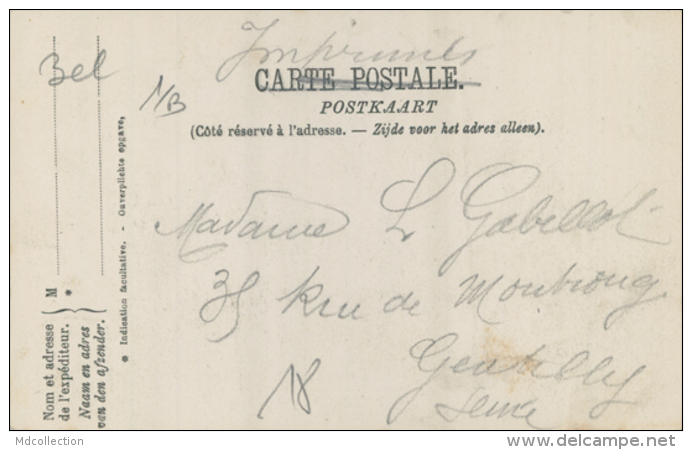 Imprimés
CARTE POSTALE.
POSTKAART
(Côté réservé à l'adresse. — Zijde voor het adres alleen).
Bel
N/B
Madame L Gabillot
35 rue de Montrouge
Gentilly
Seine
18
Nom et adresse
de l'expéditeur.
Naam en adres
van den afzender.
M
*
* Indication facultative. - Onverplichte opgave,
Mdcollection
delcampe.net